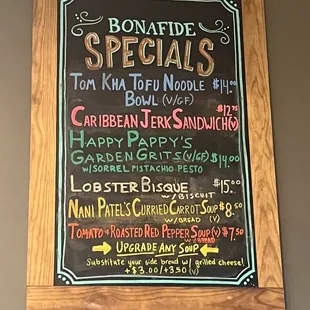 BONAFIDE
SPECIALS
TOM KHA TOFU NOODLE $14.00
BOWL (V/GF)
CARIBBEAN JERK SANDWICH(V) $12.75
HAPPY PAPPY'S
GARDEN GRITS (V/GF) $14.00
W/SORREL PISTACHIO PESTO
LOBSTER BISQUE $15.00
W/BISCUIT
NANI PATEL'S CURRIED CARROT SOUP $8.50
W/BREAD (V)
TOMATO & ROASTED RED PEPPER SOUP (V) $7.50
W/BREAD
UPGRADE ANY SOUP
Substitute your side bread w/ grilled cheese!
+$3.00/+3.50 (V)